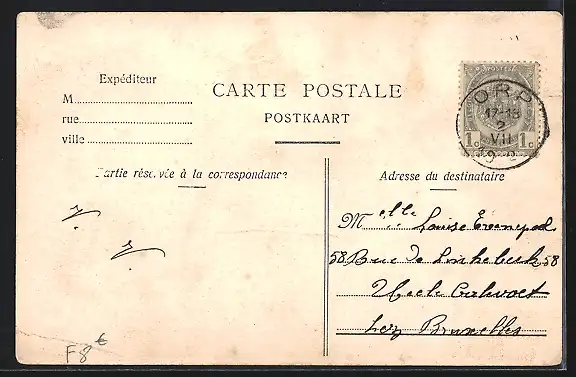 Expéditeur
M
rue
ville
CARTE POSTALE
POSTKAART
Partie réservée à la correspondance
Adresse du destinataire
ORP
17-18
2
VII
1c 1c
Melle Louise Evenepoel
58 Rue de Linkebeek 58
Uccle Calevoet
Lez Bruxelles
F8€